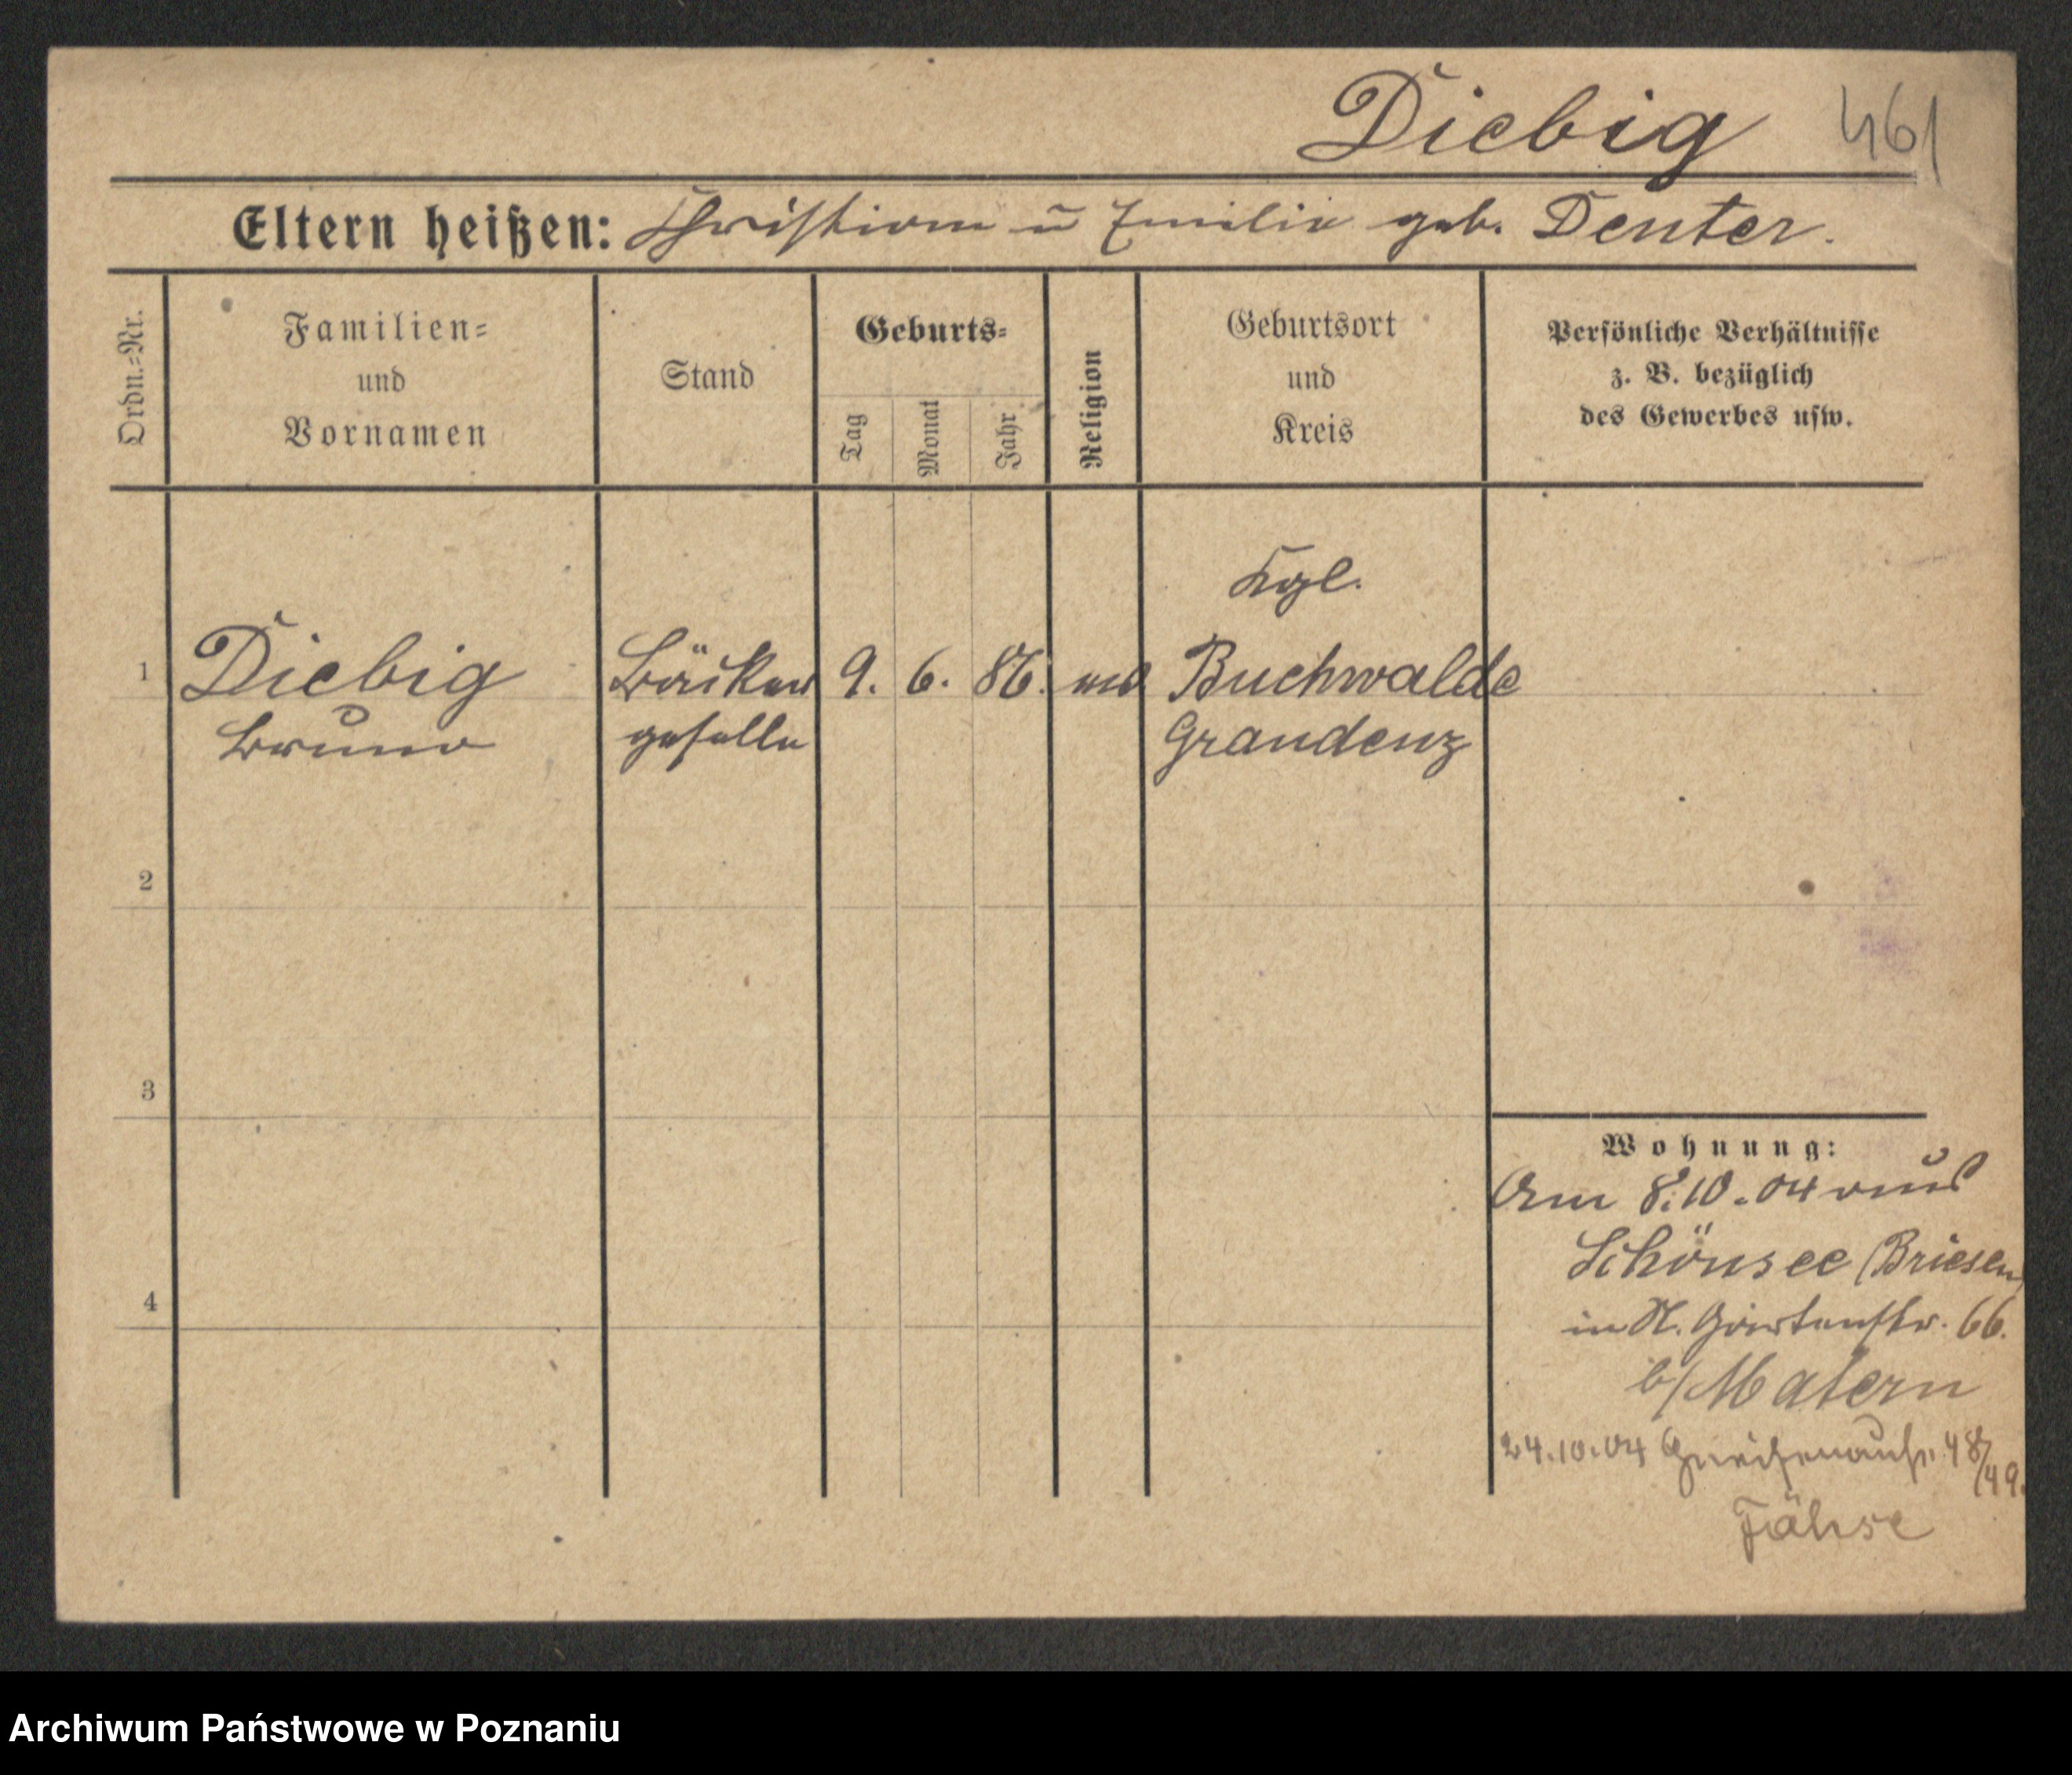 Diebig 461
Eltern heißen: Christian u Emilie geb. Denter.
Ordn.=Nr.
Familien=
und
Vornamen
Stand
Geburts=
Tag
Monat
Jahr
Religion
Geburtsort
und
Kreis
Persönliche Verhältnisse
z. B. bezüglich
des Gewerbes usw.
Kgl.
1 Diebig Bäcker 9. 6. 86. Buchwalde
Bruno geselle Graudenz
2
3
4
Wohnung:
Am 8.10.04 aus
Schönsee (Briesen)
in N. Gartenstr. 66.
b/Matern
24.10.04 Gneisenaustr. 48/49.
Fähse
Archiwum Państwowe w Poznaniu